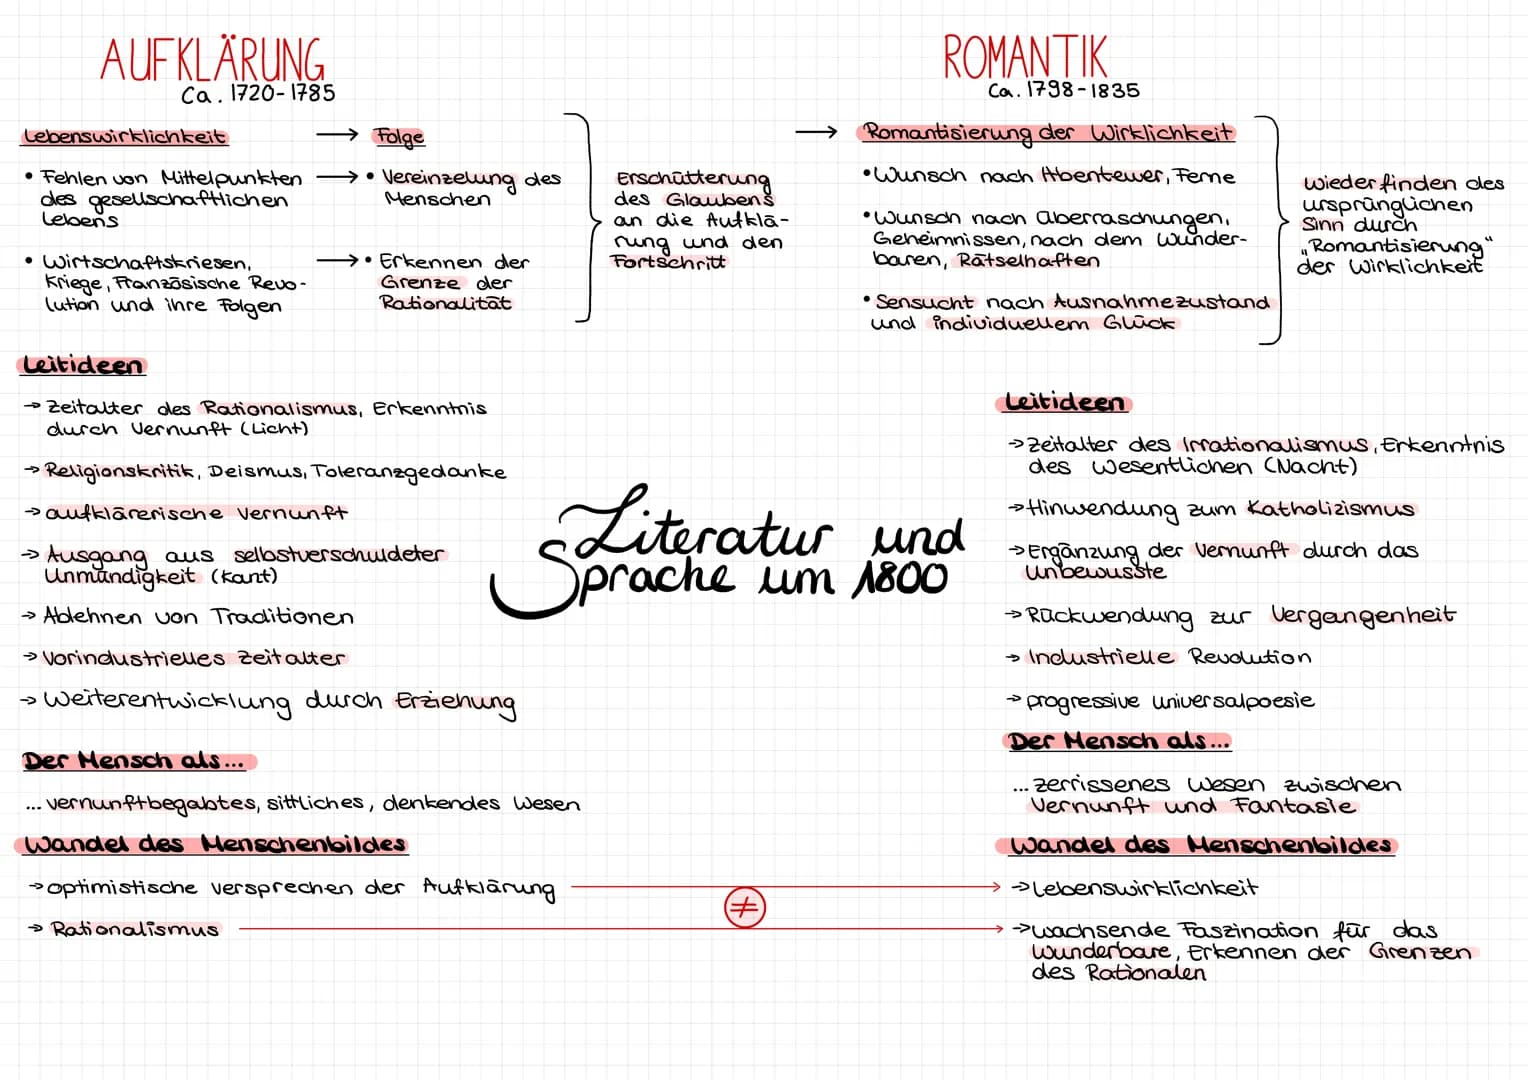 AUFKLÄRUNG
Ca. 1720-1785
Lebenswirklichkeit → Folge
• Fehlen von Mittelpunkten → • Vereinzelung des
des gesellschaftlichen Menschen
Lebens
• Wirtschaftskriesen, → • Erkennen der
Kriege, Französische Revo- Grenze der
lution und ihre Folgen Rationalität
Erschütterung
des Glaubens
an die Aufklä-
rung und den
Fortschritt
→ Romantisierung der Wirklichkeit
ROMANTIK
Ca. 1798-1835
• Wunsch nach Abenteuer, Ferne
• Wunsch nach Überraschungen,
Geheimnissen, nach dem Wunder-
baren, Rätselhaften
• Sensucht nach Ausnahmezustand
und individuellem Glück
Wiederfinden des
ursprünglichen
Sinn durch
„Romantisierung"
der Wirklichkeit
Leitideen
→ Zeitalter des Rationalismus, Erkenntnis
durch Vernunft (Licht)
→ Religionskritik, Deismus, Toleranzgedanke
→ aufklärerische Vernunft
→ Ausgang aus selbstverschuldeter
Unmündigkeit (Kant)
→ Ablehnen von Traditionen
→ Vorindustrielles Zeitalter
→ Weiterentwicklung durch Erziehung
Literatur und
Sprache um 1800
Leitideen
→ Zeitalter des Irrationalismus, Erkenntnis
des Wesentlichen (Nacht)
→ Hinwendung zum Katholizismus
→ Ergänzung der Vernunft durch das
Unbewusste
→ Rückwendung zur Vergangenheit
→ Industrielle Revolution
→ progressive Universalpoesie
Der Mensch als...
... vernunftbegabtes, sittliches, denkendes Wesen
Der Mensch als...
... zerrissenes Wesen zwischen
Vernunft und Fantasie
Wandel des Menschenbildes
→ optimistische Versprechen der Aufklärung
→ Rationalismus
≠
Wandel des Menschenbildes
→ Lebenswirklichkeit
→ wachsende Faszination für das
Wunderbare, Erkennen der Grenzen
des Rationalen